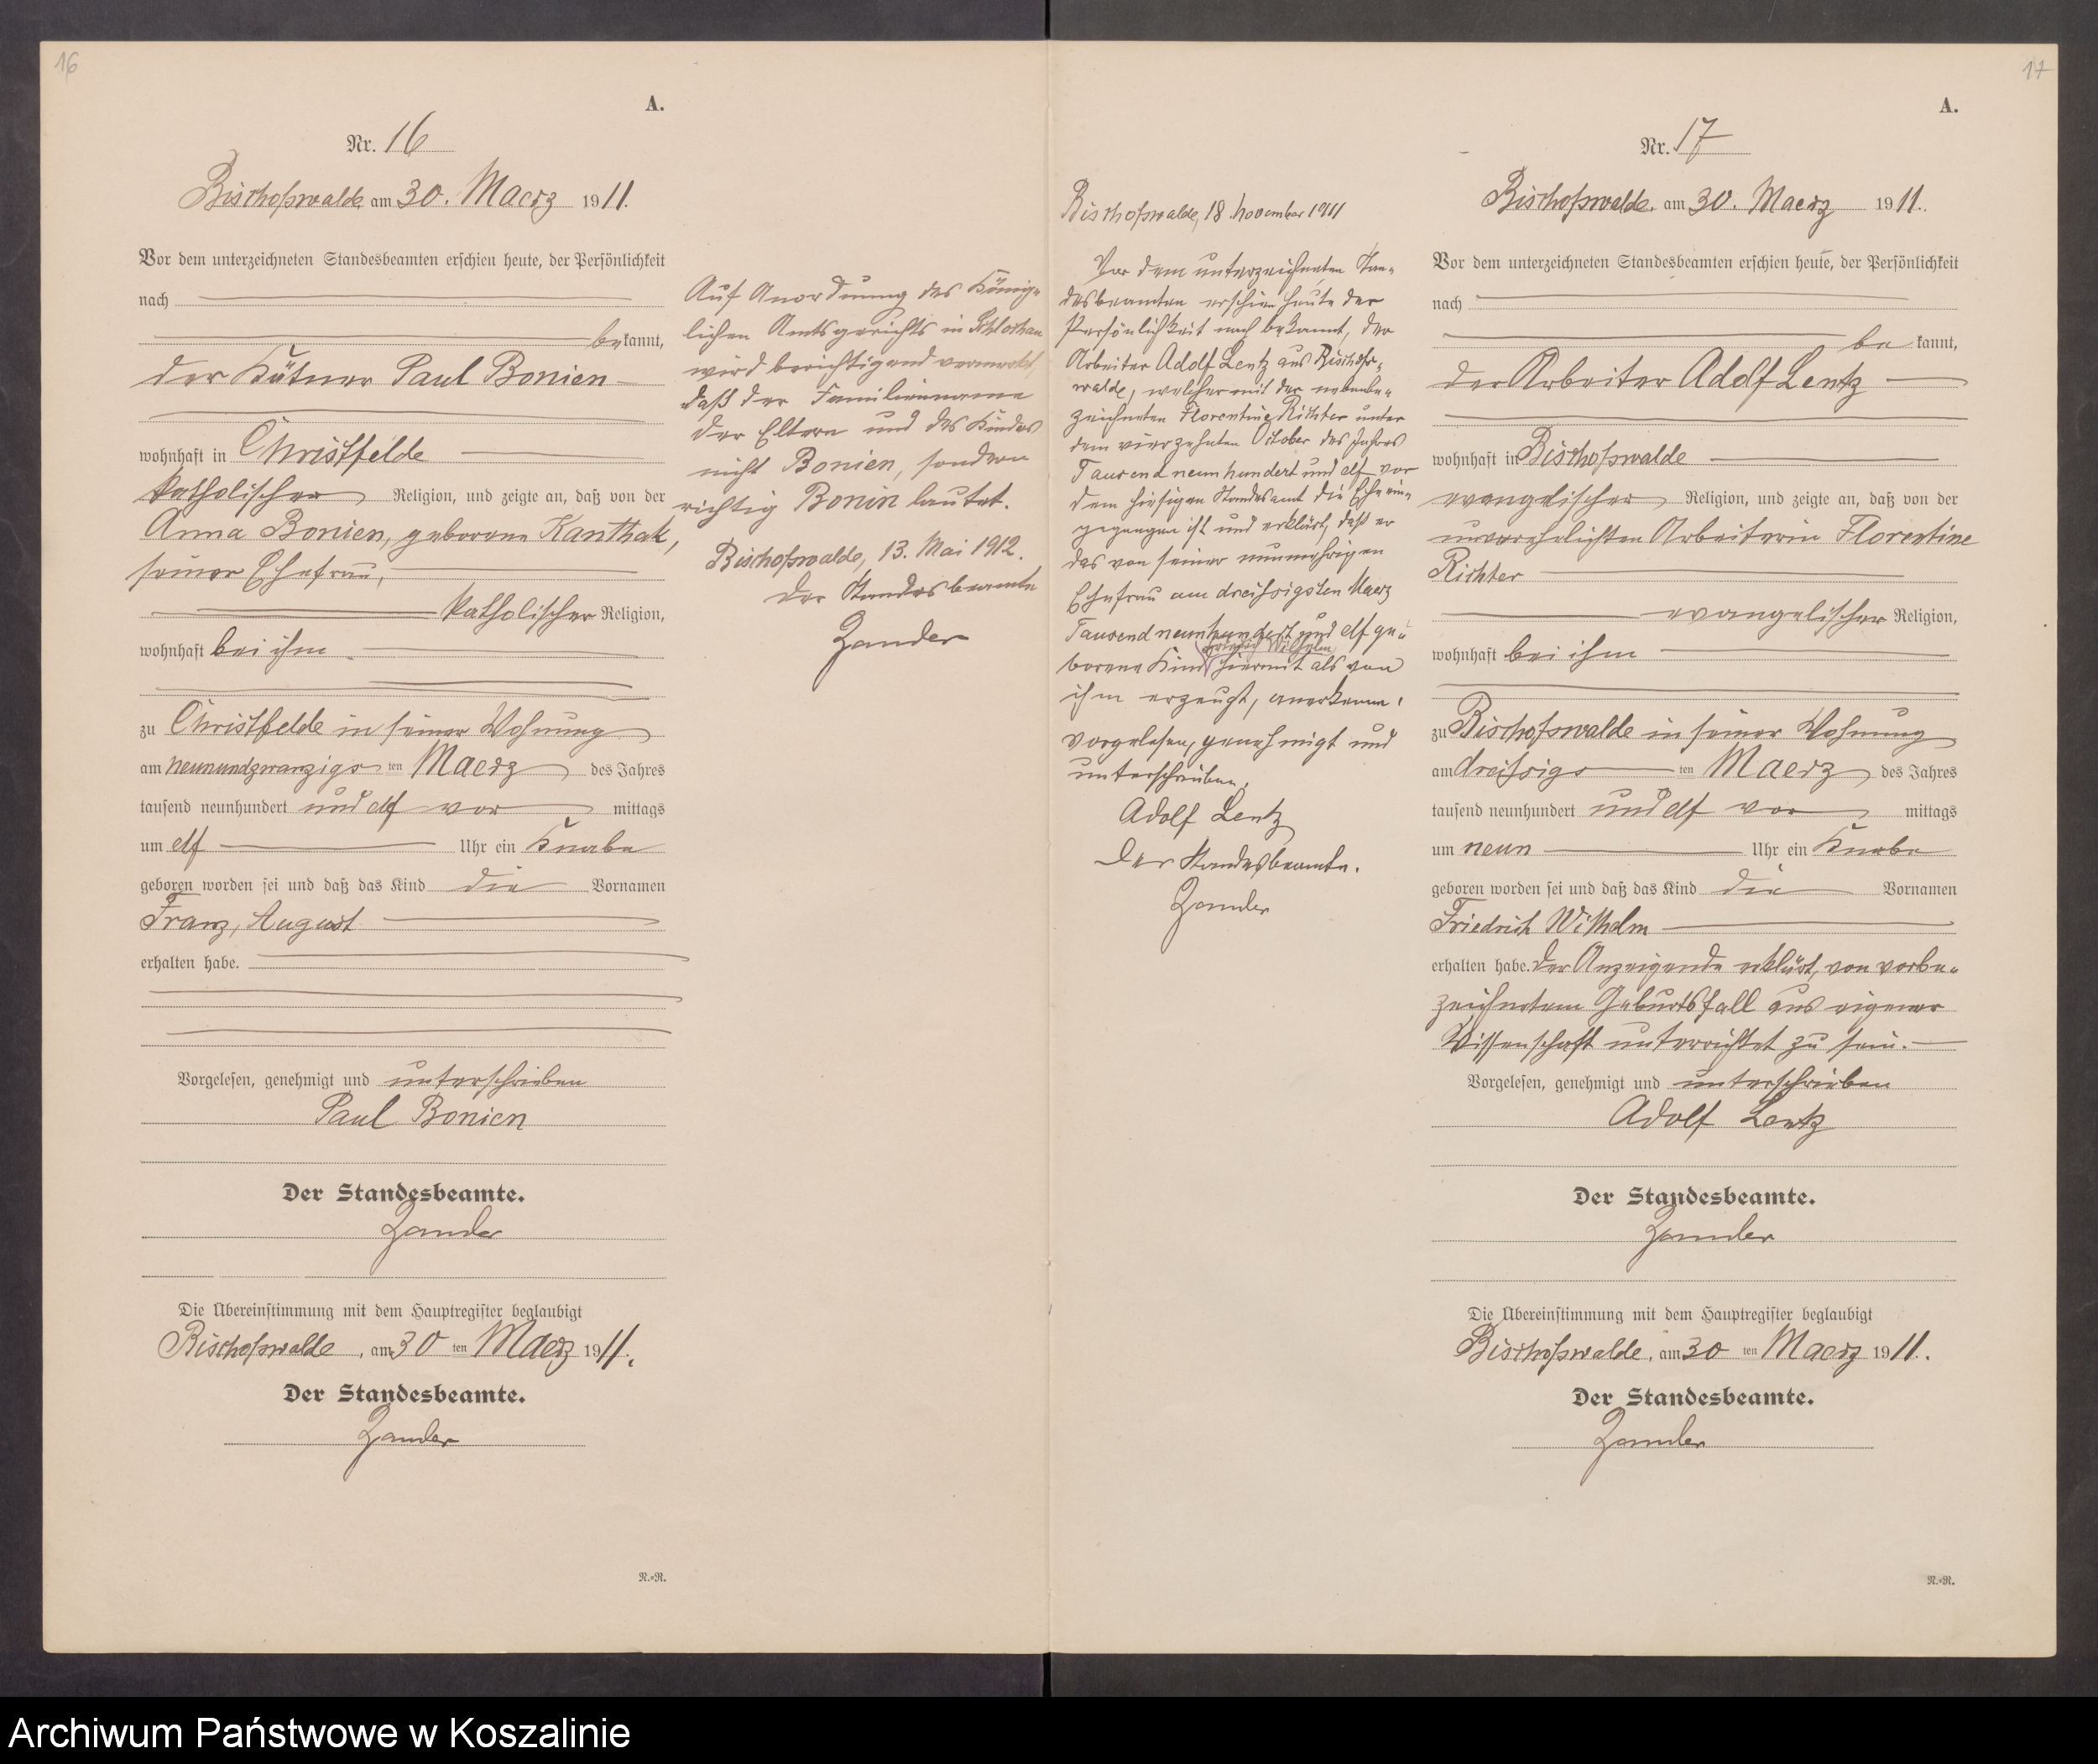 16
A.
Nr. 16
Bischofswalde am 30. Maerz 1911.
Vor dem unterzeichneten Standesbeamten erschien heute, der Persönlichkeit
nach
bekannt,
der Kätner Paul Bonien
wohnhaft in Christfelde
katholischer Religion, und zeigte an, daß von der
Anna Bonien, geborene Kanthak,
seiner Ehefrau,
katholischer Religion,
wohnhaft bei ihm
zu Christfelde in seiner Wohnung
am neunundzwanzigs ten Maerz des Jahres
tausend neunhundert und elf vor mittags
um elf Uhr ein Knabe
geboren worden sei und daß das Kind die Vornamen
Franz, August
erhalten habe.
Vorgelesen, genehmigt und unterschrieben
Paul Bonien
Der Standesbeamte.
Zander
Die Übereinstimmung mit dem Hauptregister beglaubigt
Bischofswalde, am 30 ten Maerz 1911.
Der Standesbeamte.
Zander
N.=R.
Auf Anordnung des König-
lichen Amtsgerichts in Schlochau
wird berichtigend vermerkt,
daß der Familienname
der Eltern und des Kindes
nicht Bonien, sondern
richtig Bonin lautet.
Bischofswalde, 13. Mai 1912.
Der Standesbeamte
Zander
Bischofswalde, 18. November 1911
Vor dem unterzeichneten Stan-
desbeamten erschien heute der
Persönlichkeit nach bekannt, der
Arbeiter Adolf Lentz aus Bischofs-
walde, welcher mit der nebenbe-
zeichneten Florentine Richter unter
dem vierzehnten October des Jahres
Tausend neunhundert und elf vor
dem hiesigen Standesamt die Ehe ein-
gegangen ist und erklärt, daß er
das von seiner nunmehrigen
Ehefrau am dreißigsten Maerz
Tausend neunhundert und elf ge-
Friedrich Wilhelm
borene Kind hiermit als von
ihm erzeugt, anerkenne.
Vorgelesen, genehmigt und
unterschrieben.
Adolf Lentz
Der Standesbeamte.
Zander
17
A.
Nr. 17
Bischofswalde, am 30. Maerz 1911.
Vor dem unterzeichneten Standesbeamten erschien heute, der Persönlichkeit
nach
be kannt,
der Arbeiter Adolf Lentz
wohnhaft in Bischofswalde
evangelischer Religion, und zeigte an, daß von der
unverehelichten Arbeiterin Florentine
Richter
evangelischer Religion,
wohnhaft bei ihm
zu Bischofswalde in seiner Wohnung
am dreißigs ten Maerz des Jahres
tausend neunhundert und elf vor mittags
um neun Uhr ein Knabe
geboren worden sei und daß das Kind die Vornamen
Friedrich Wilhelm
erhalten habe. Der Anzeigende erklärt, von vorbe-
zeichnetem Geburtsfall aus eigener
Wissenschaft unterrichtet zu sein.
Vorgelesen, genehmigt und unterschrieben
Adolf Lentz
Der Standesbeamte.
Zander
Die Übereinstimmung mit dem Hauptregister beglaubigt
Bischofswalde, am 30 ten Maerz 1911.
Der Standesbeamte.
Zander
N.=R.
Archiwum Państwowe w Koszalinie